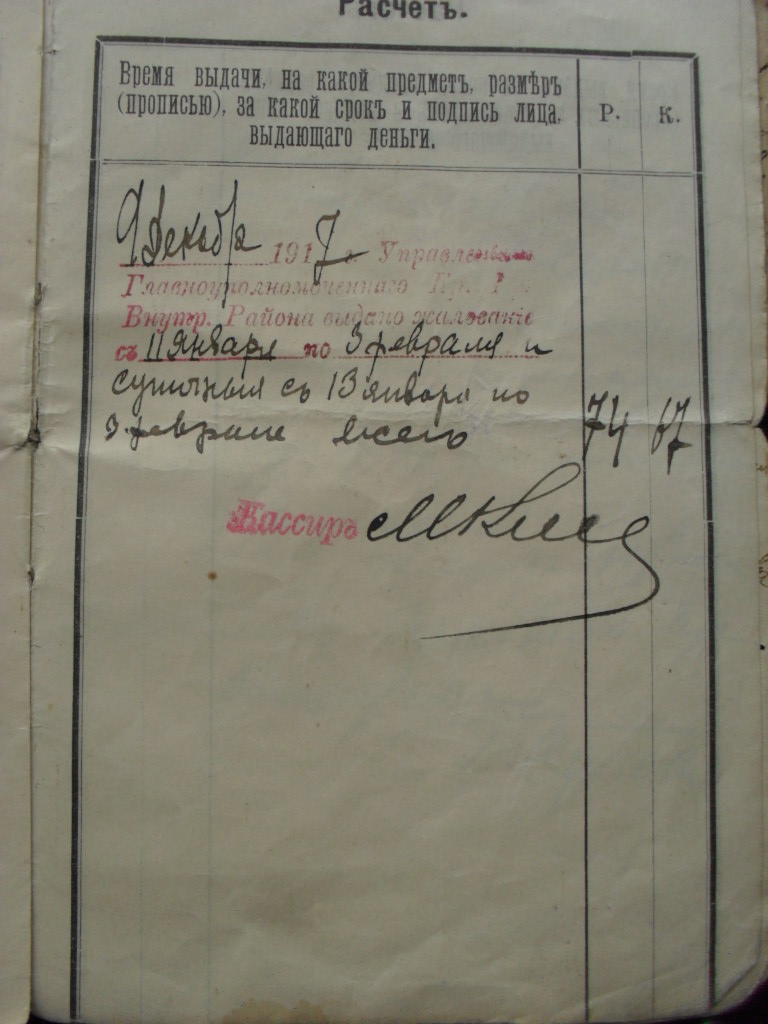 Расчетъ.
Время выдачи, на какой предметъ, размѣръ
(прописью), за какой срокъ и подпись лица,
выдающаго деньги.
Р.
К.
9 Декабря 1917 г. Управленіемъ
Главноуполномоченнаго
Внутр. Района выдано жалованіе
съ 11 января по 3 февраля и
суточныя съ 13 января по
3 февраля всего 74 67
Кассиръ